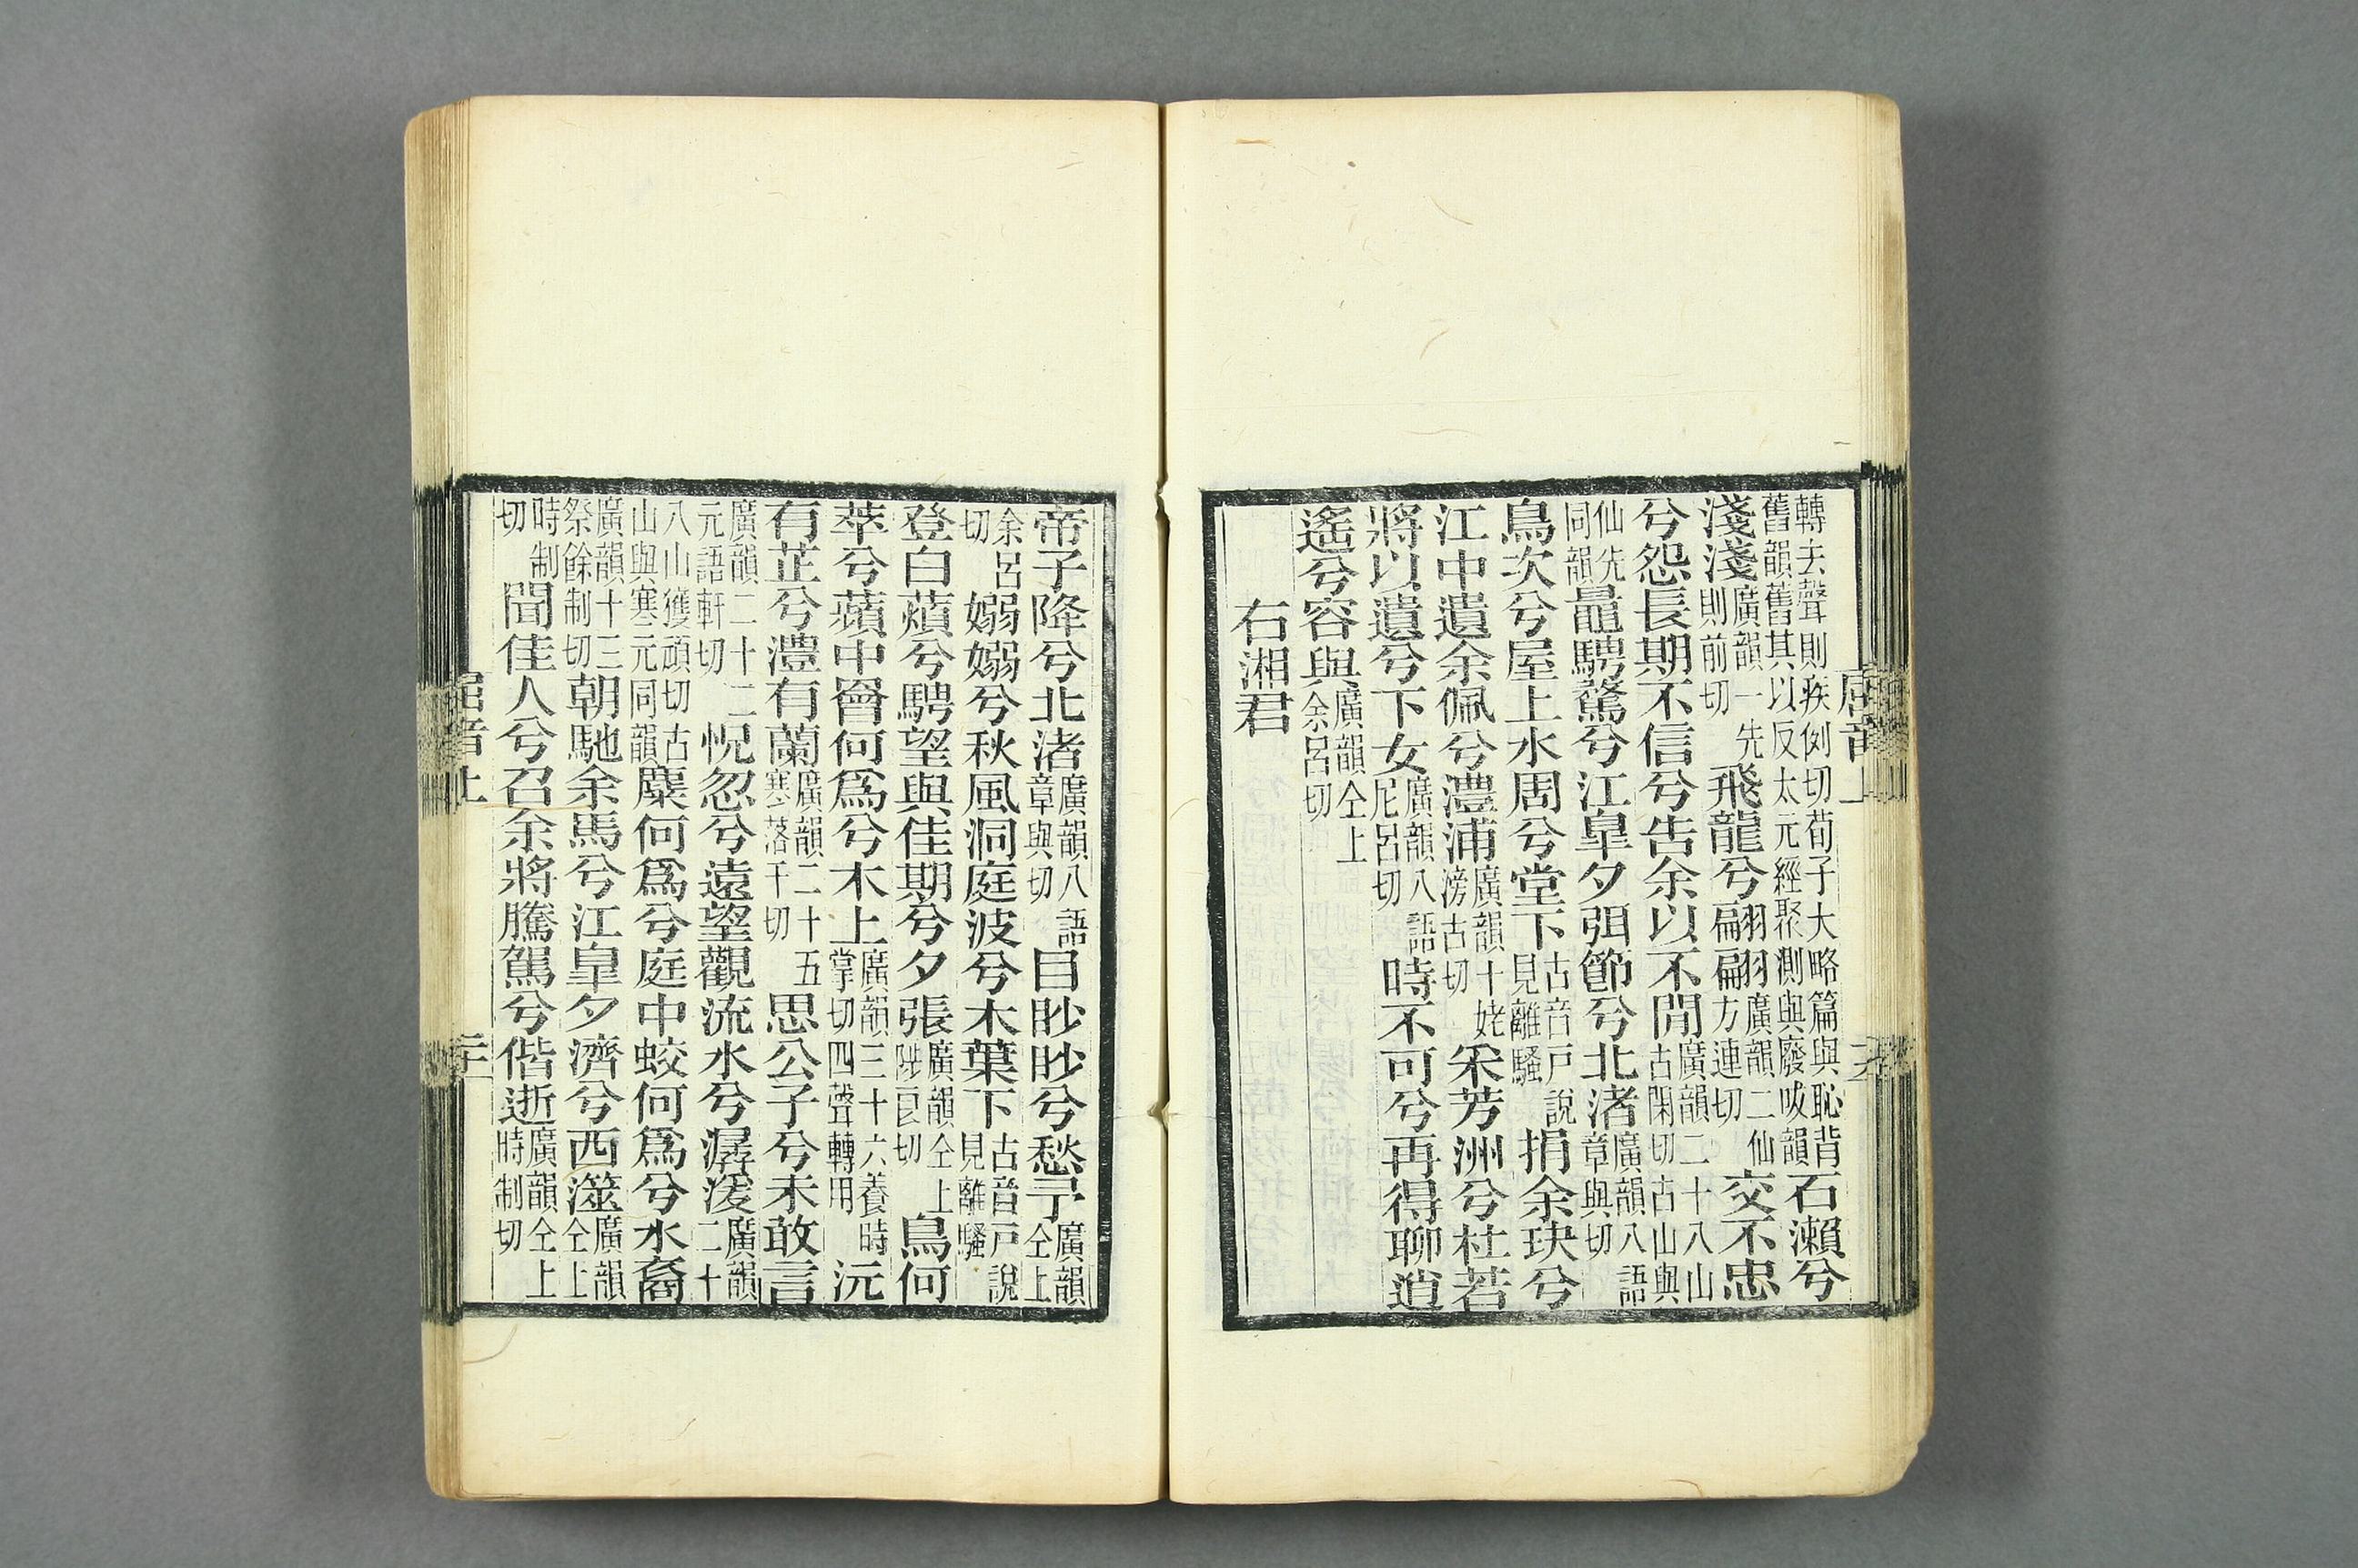 轉去聲則疾例切荀子大略篇與恥背舊韻舊其以反太元經聚測與廢吠韻石瀨兮
淺淺廣韻一先則前切飛龍兮翩翩廣韻二仙方連切交不忠
兮怨長期不信兮告余以不閒廣韻二十八山古閑切古山與
仙先同韻鼂騁騖兮江皐夕弭節兮北渚廣韻八語章與切
鳥次兮屋上水周兮堂下古音戸說見離騷捐余玦兮
江中遺余佩兮澧浦廣韻十姥滂古切采芳洲兮杜若
將以遺兮下女廣韻八語尼呂切時不可兮再得聊逍
遙兮容與廣韻仝上余呂切
右湘君
帝子降兮北渚廣韻八語章與切目眇眇兮愁予廣韻仝上
余呂切嫋嫋兮秋風洞庭波兮木葉下古音戸說見離騷
登白薠兮騁望與佳期兮夕張廣韻仝上陟亮切鳥何
萃兮蘋中罾何爲兮木上廣韻三十六養時掌切四聲轉用沅
有芷兮澧有蘭廣韻二十五寒落干切思公子兮未敢言
廣韻二十二元語軒切怳忽兮遠望觀流水兮潺湲廣韻二十
八山獲頑切古山與寒元同韻麋何爲兮庭中蛟何爲兮水裔
廣韻十三祭餘制切朝馳余馬兮江皐夕濟兮西澨廣韻仝上
時制切聞佳人兮召余將騰駕兮偕逝廣韻仝上時制切
屈音上
二十